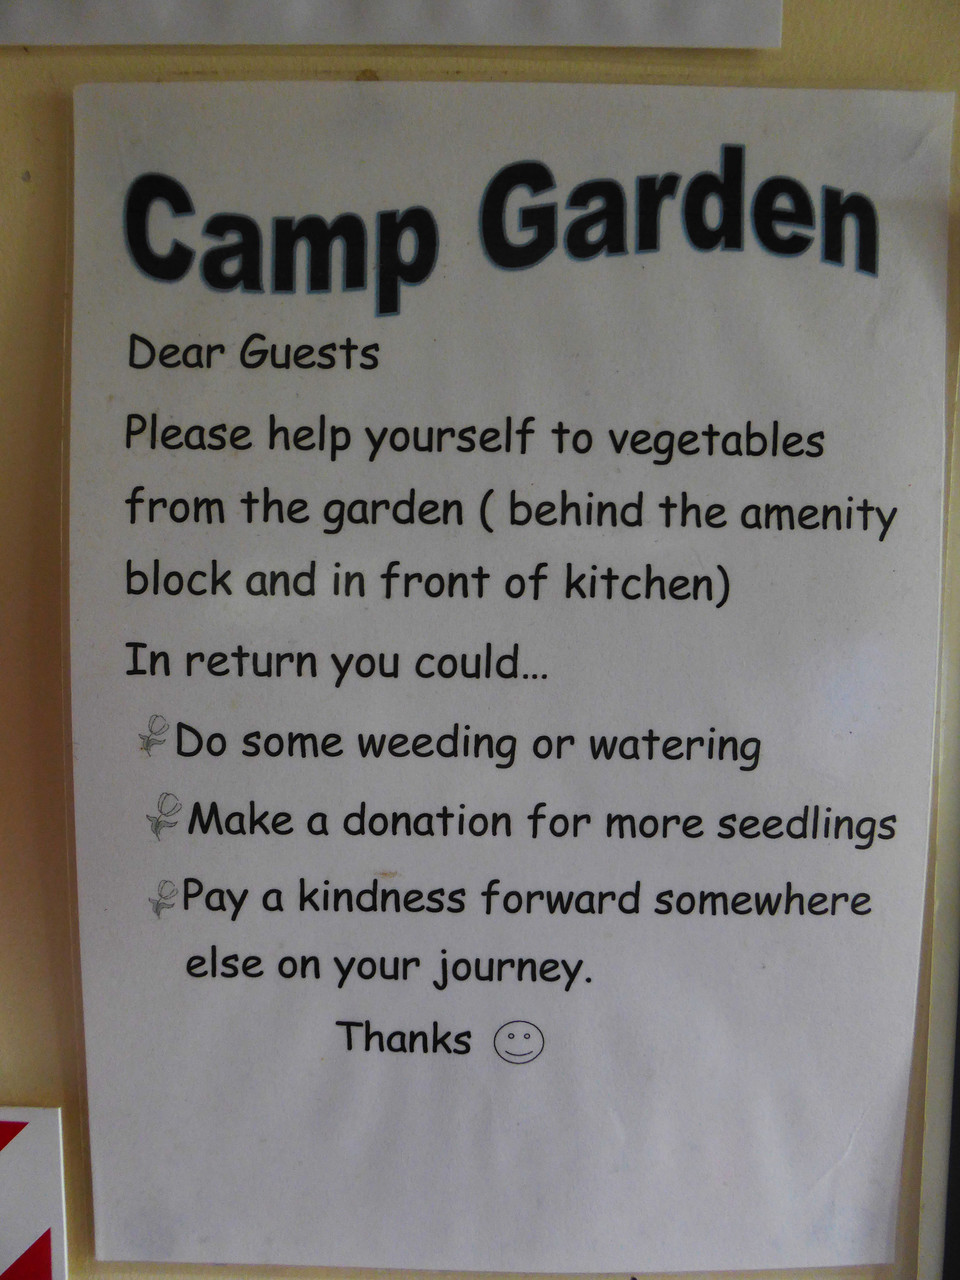 Camp Garden
Dear Guests
Please help yourself to vegetables
from the garden ( behind the amenity
block and in front of kitchen)
In return you could...
Do some weeding or watering
Make a donation for more seedlings
Pay a kindness forward somewhere
else on your journey.
Thanks